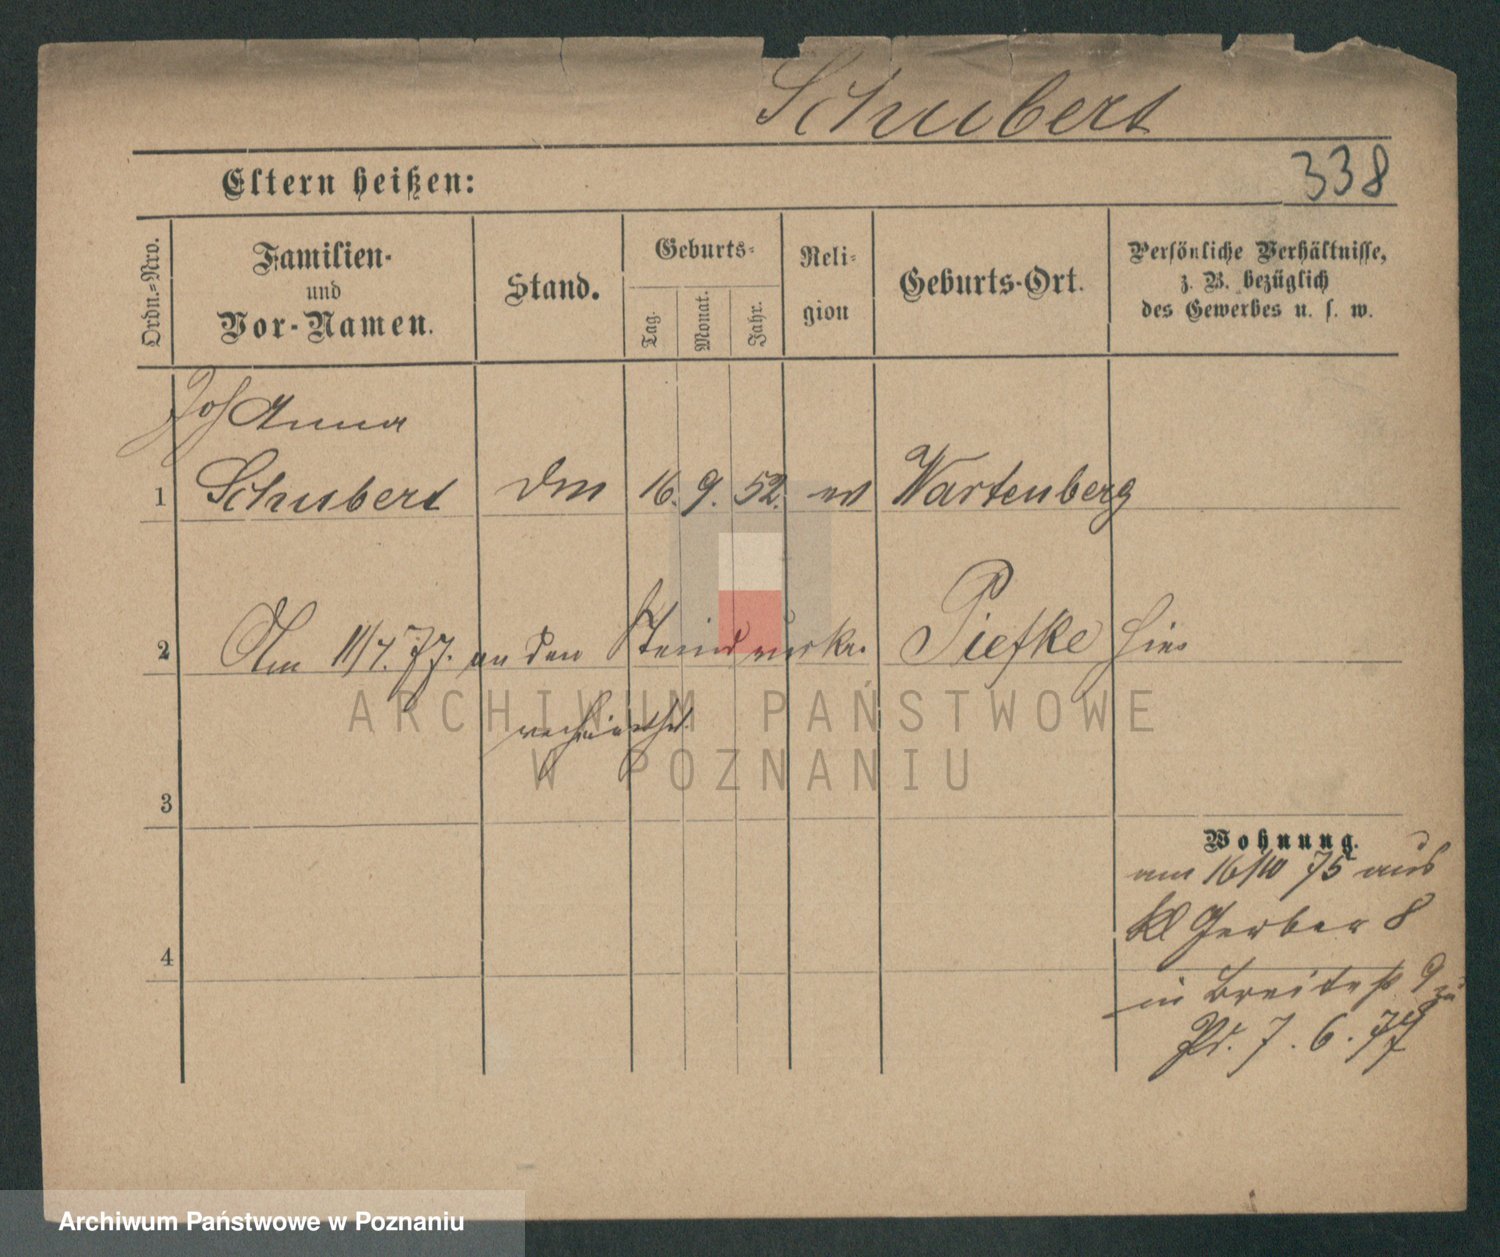 Schubert
338
Eltern heißen:
Ordn.-Nro.
Familien-
und
Vor-Namen.
Stand.
Geburts-
Tag.
Monat.
Jahr.
Reli-
gion
Geburts-Ort.
Persönliche Verhältnisse,
z. B. bezüglich
des Gewerbes u. s. w.
Joh Anna
1 Schubert 16. 9. 52. ev Wartenberg
2 Am 11/7. 77. an den Piefke hier
verheirathet.
3
Wohnung.
am 16/10 75 aus
Kl Gerber 8
4
in Breitestr 9 zu
7. 6. 77
ARCHIWUM PAŃSTWOWE
W POZNANIU
Archiwum Państwowe w Poznaniu